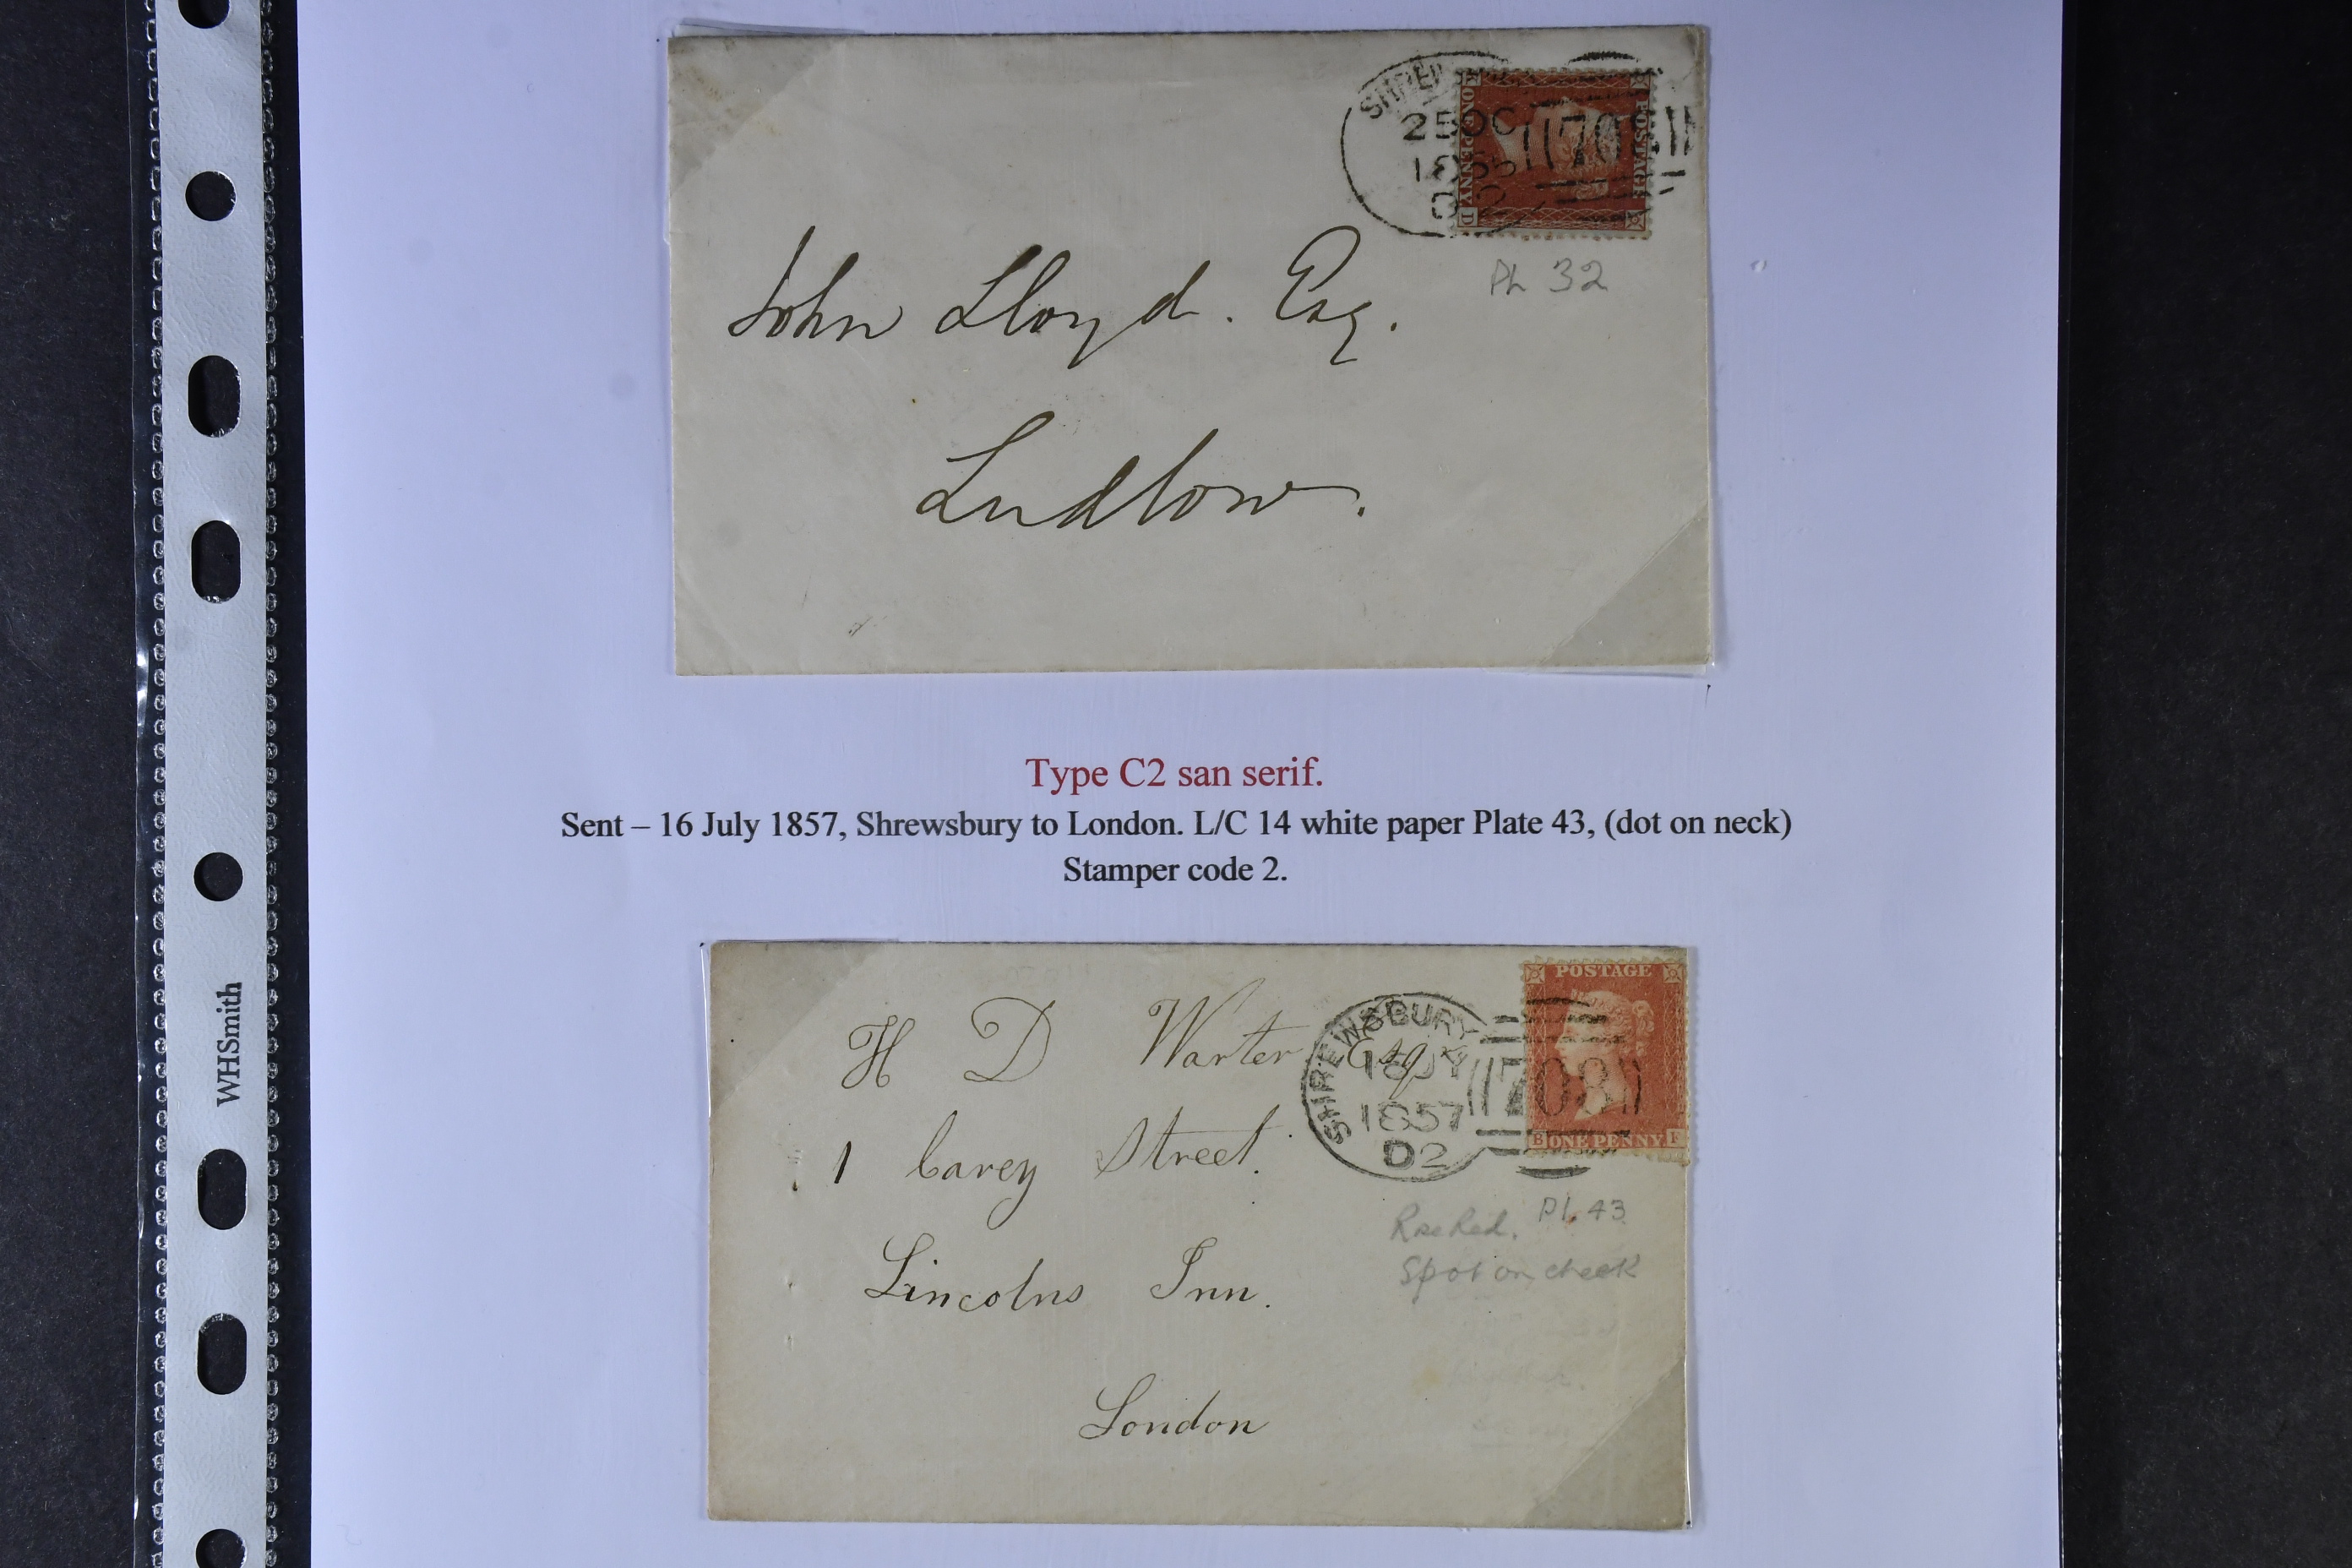 SHREWSBURY
25 OC
708
ONE PENNY
POSTAGE
D
PL 32
John Lloyd. Esq.
Ludlow.
Type C2 san serif.
Sent – 16 July 1857, Shrewsbury to London. L/C 14 white paper Plate 43, (dot on neck)
Stamper code 2.
H D Warter Esq
1 Carey Street.
Lincolns Inn.
London
SHREWSBURY
16 JY
1857
D2
708
POSTAGE
B ONE PENNY F
Pl. 43
Rose Red.
Spot on cheek
WHSmith